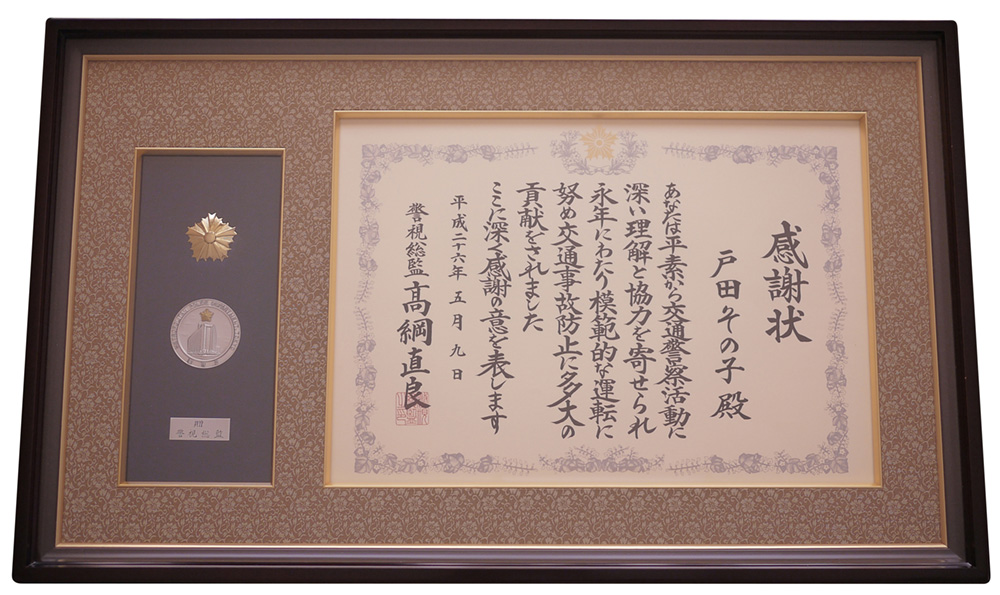 感謝状
戸田その子 殿
あなたは平素から交通警察活動に
深い理解と協力を寄せられ
永年にわたり模範的な運転に
努め交通事故防止に多大の
貢献をされました
ここに深く感謝の意を表します
平成二十六年 五月 九日
警視総監 髙綱直良
贈
警視総監